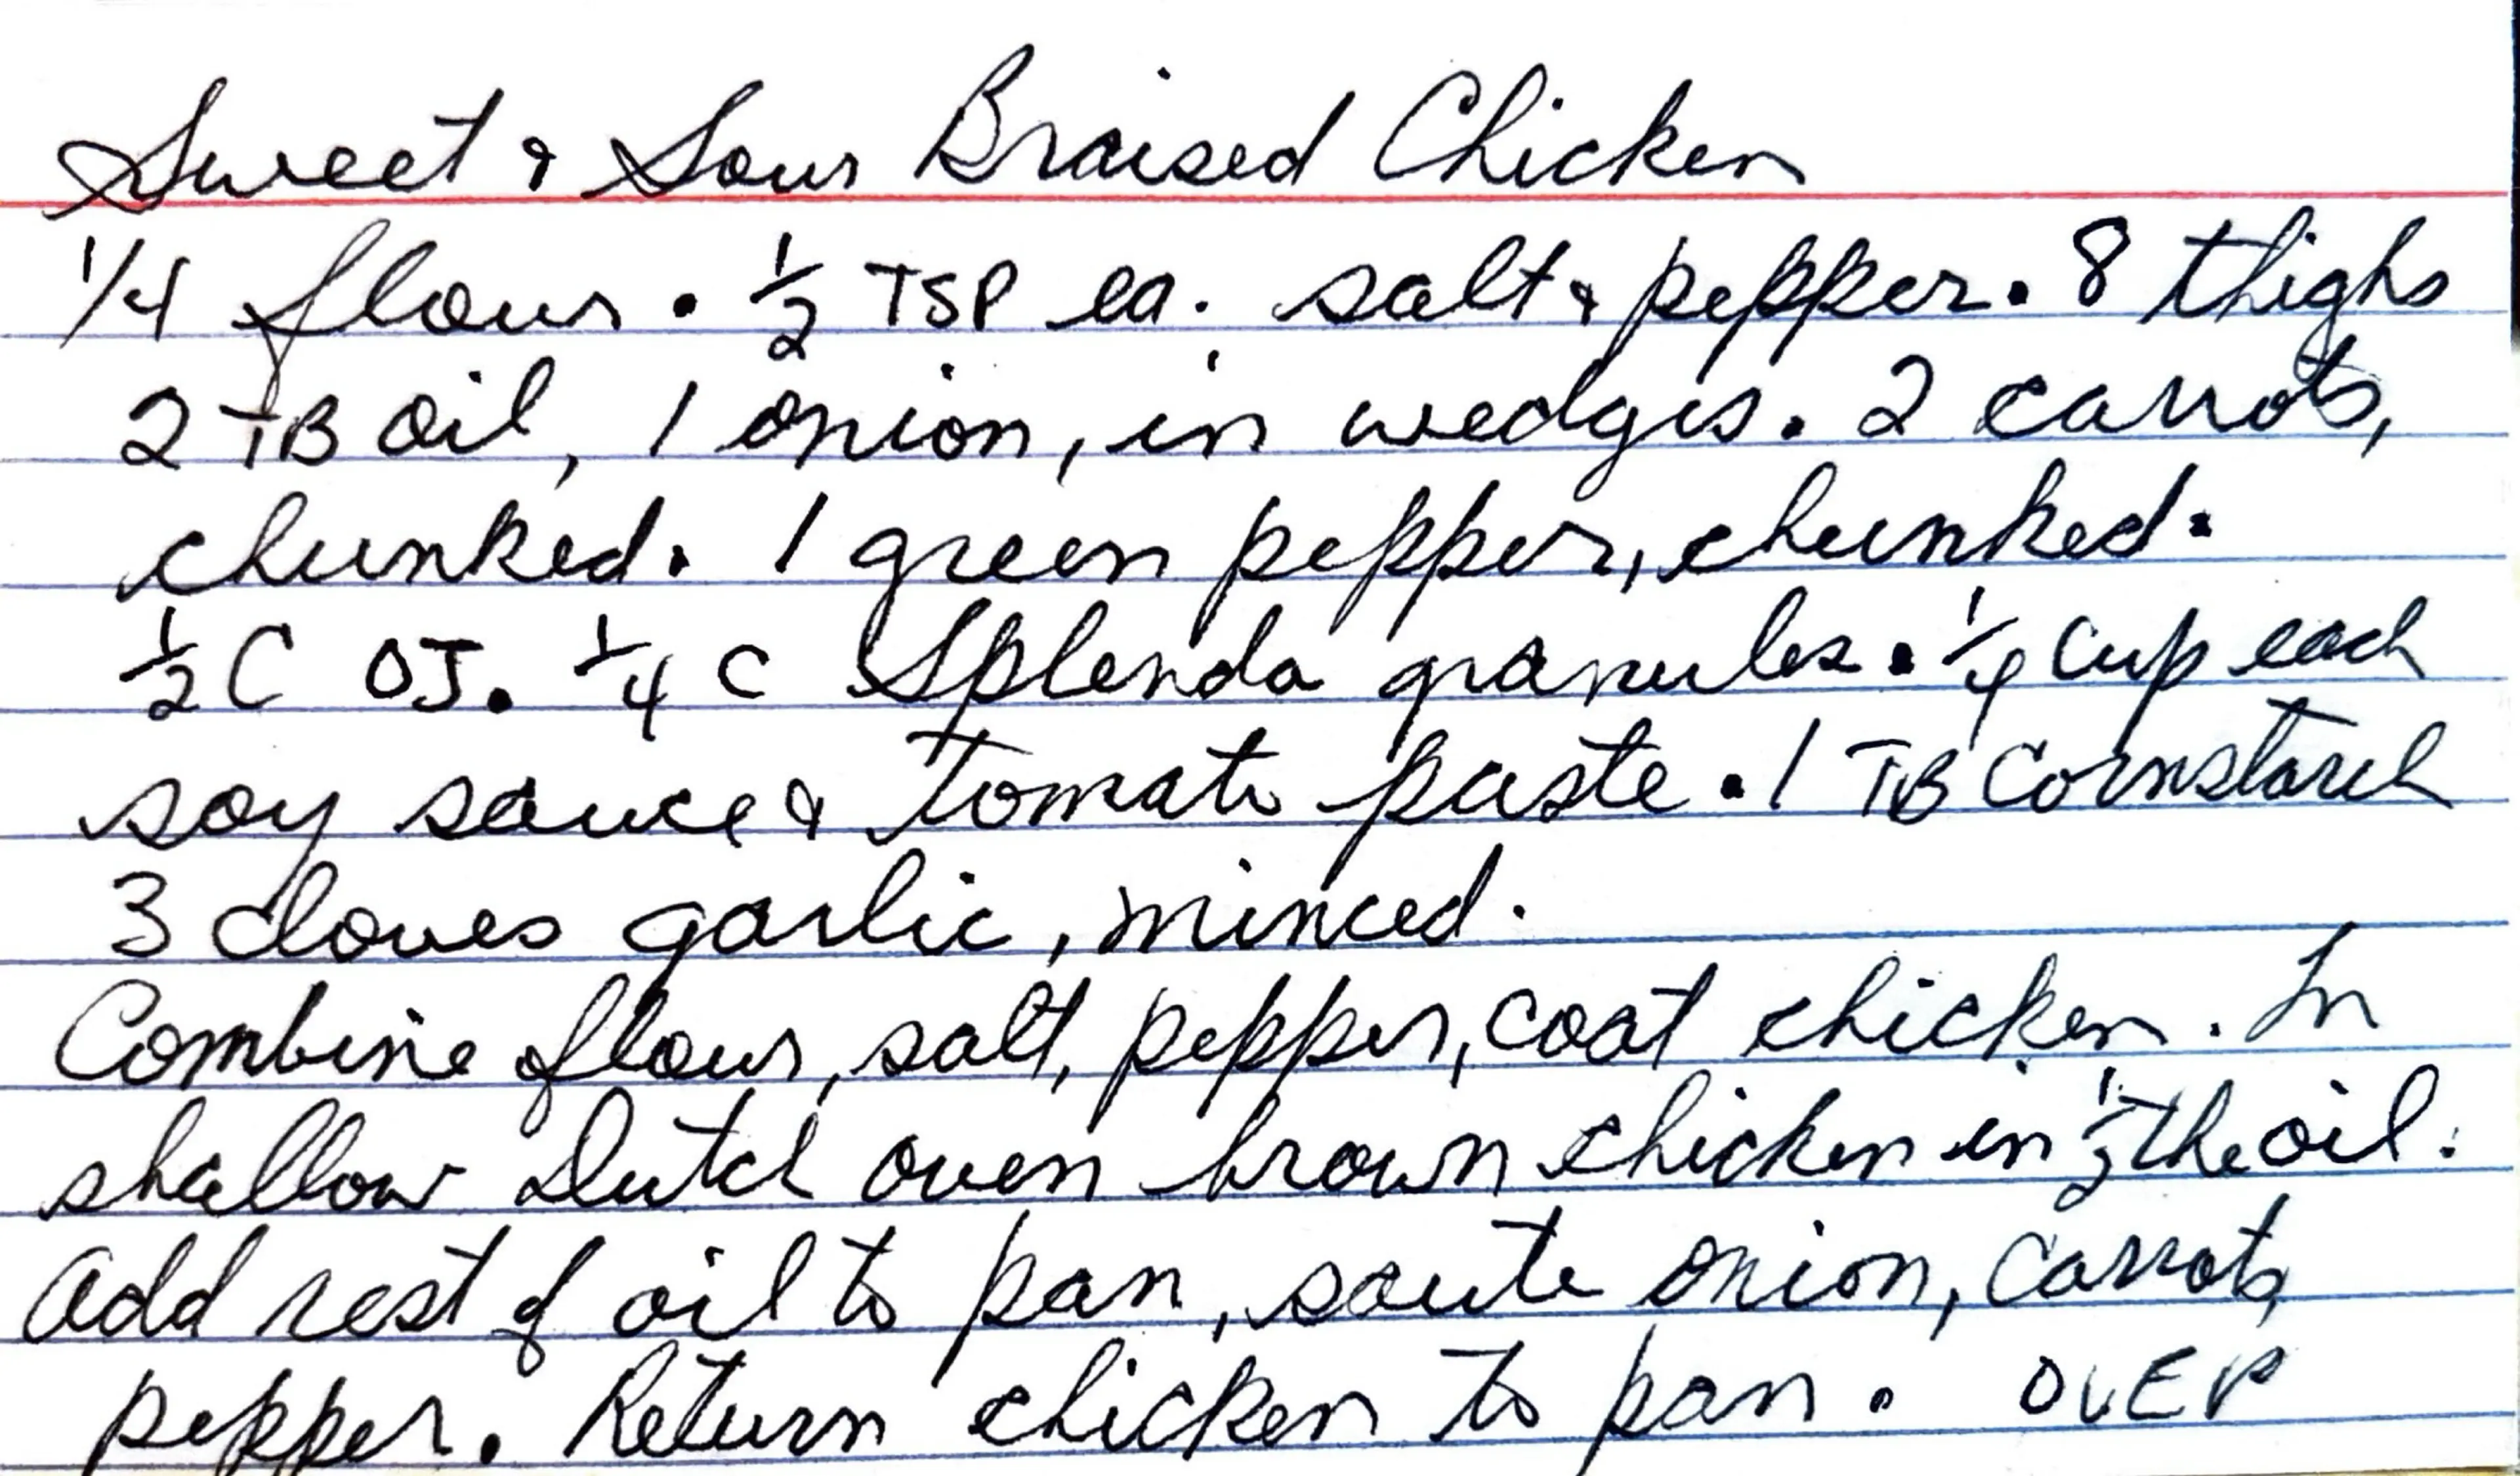 Sweet & Sour Braised Chicken
1/4 flour. 1/2 TSP ea. salt & pepper. 8 thighs
2 TB oil, 1 onion, in wedges. 2 carrots,
chunked. 1 green pepper, chunked.
1/2 C OJ. 1/4 C Splenda granules. 1/4 Cup each
soy sauce & tomato paste. 1 TB Cornstarch
3 cloves garlic, minced.
Combine flour, salt, pepper, coat chicken. In
shallow Dutch oven brown chicken in 1/2 the oil.
Add rest of oil to pan, saute onion, carrots,
pepper. Return chicken to pan. OVER